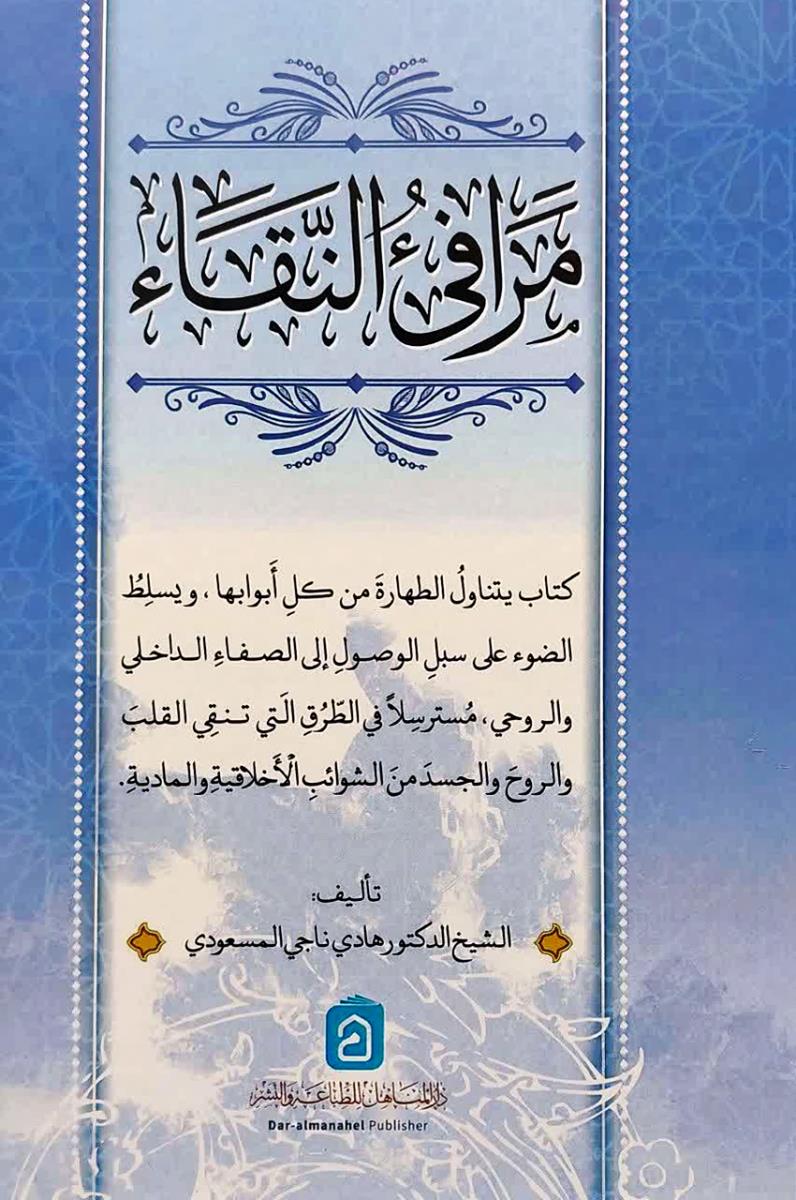 مَرَافِئُ النَّقَاء
كتاب يتناولُ الطهارةَ من كلِ أَبوابها، ويسلِطُ
الضوء على سبلِ الوصولِ إلى الصفاءِ الداخلي
والروحي، مُسترسِلاً في الطّرُقِ الَتي تنقِي القلبَ
والروحَ والجسدَ منَ الشوائبِ الْأَخلاقيةِ والماديةِ.
تأليف:
الشيخ الدكتور هادي ناجي المسعودي
دار المناهل للطباعة والنشر
Dar-almanahel Publisher